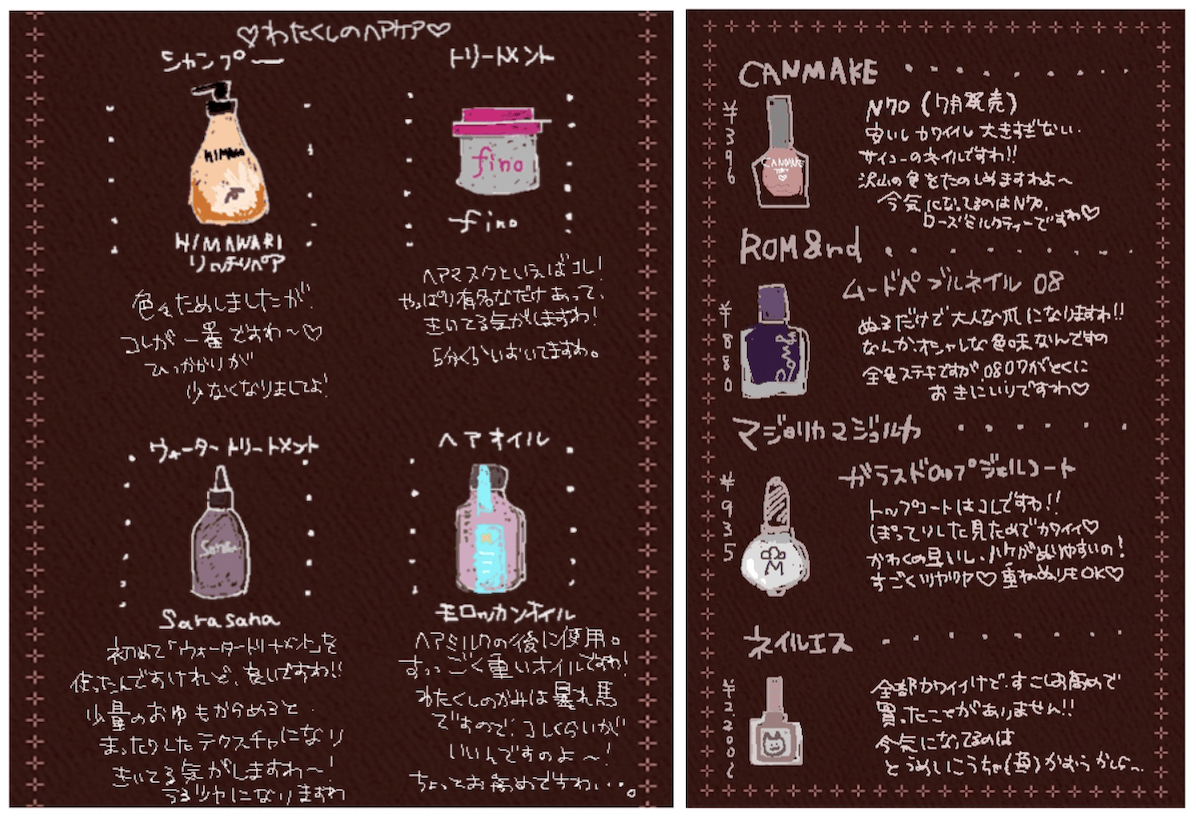 ♡わたくしのヘアケア♡
シャンプー
HIMAWA
HIMAWARI
リッチリペア
色々ためしましたが
コレが一番ですわ〜♡
ひっかかりが
少なくなりましてよ!
トリートメント
fino
fino
ヘアマスクといえばコレ!
やっぱり有名なだけあって、
きいてる気がしますわ!
5分くらいおいてますわ。
ウォータートリートメント
Sarasa
Sarasara
初めて「ウォータートリートメント」を
使ったんですけれど、良いですわ!!
少量のおゆもからめると
まったりしたテクスチャになり
きいてる気がしますわ〜!
うるツヤになりますわ
ヘアオイル
モロッカンオイル
ヘアミルクの後に使用。
すっっごく重いオイルですわ!
わたくしのかみは暴れ馬
ですので、コレくらいが
いいんですのよ〜!
ちょっとお高めですわい...。
CANMAKE
¥396
CANMAKE
N70 (7月発売)
安いしカワイイし大きすぎない
サイコーのネイルですわ!!
沢山の色をたのしめますわよ〜
今気になってるのはN70、
ローズミルクティーですわ♡
ROM&nd
¥880
ムードペブルネイル 08
ぬるだけで大人な爪になりますわ!!
なんかオシャレな色味なんですの
全色ステキですが、080フがとくに
おきにいりですわ♡
マジョリカマジョルカ
¥935
M
ガラスドロップジェルコート
トップコートはコレですわ!!
ぽってりした見ためでカワイイ♡
かわくの早いし、ハケがぬりやすいの!
すごくツヤツヤ♡重ねぬりもOK♡
ネイルエス
¥2200〜
全部カワイイけど、すこしお高めで
買ったことがありません!!
今気になってるのは
とうめいこうちゃ(苺)かおうかしら〜